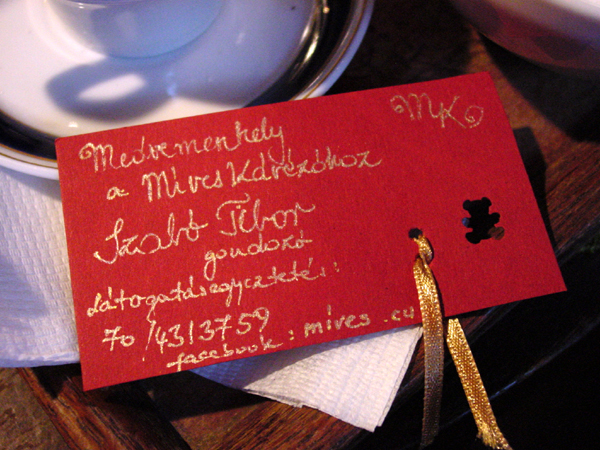 MK
Medvemenhely
a Míves Kávézóhoz
Szabó Tibor
gondozó
Látogatásegyeztetés:
70/4313759
facebook: mives.cu